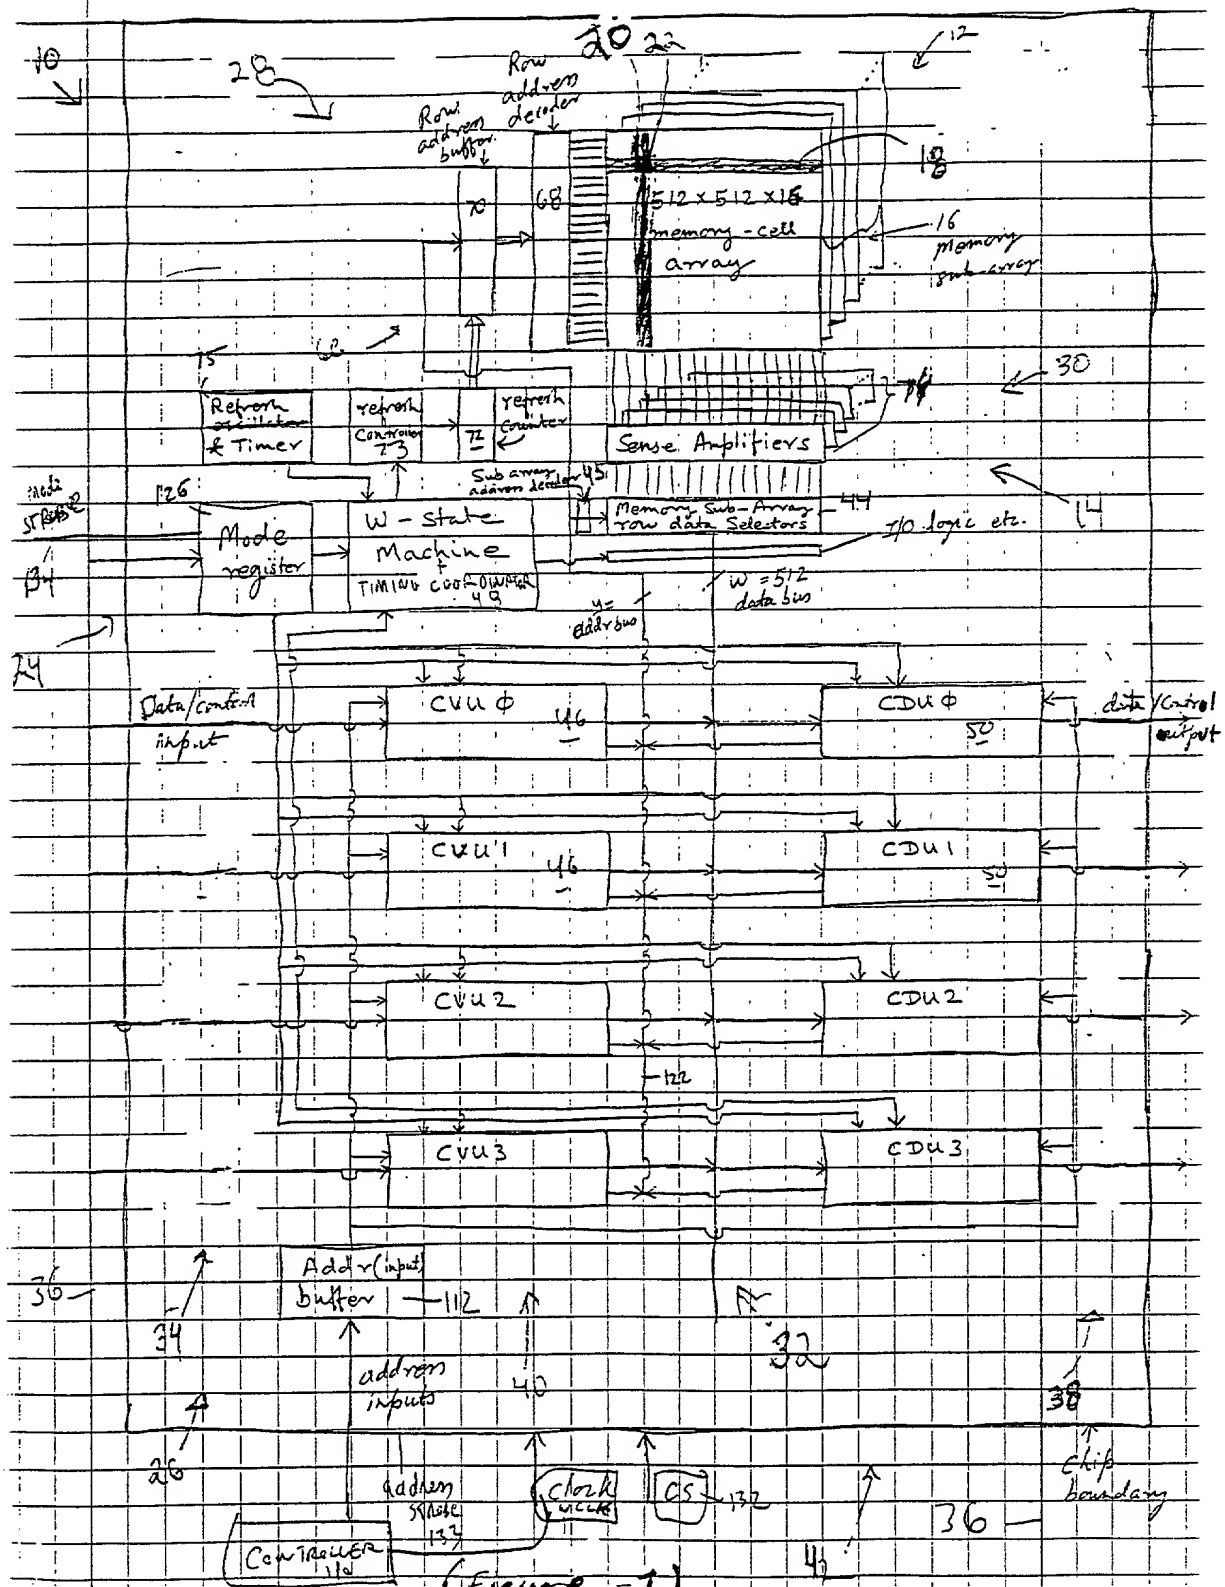 20 22
12
10
28
Row
address
decoder
Row
address
buffer
18
70
68
512 x 512 x 16
memory-cell
array
16
memory
sub-array
75
30
Refresh
oscillator
& Timer
refresh
Controller
73
72
refresh
Counter
Sense Amplifiers
Sub array
address decoder 45
14
mode
strobe
126
Mode
register
W-State
Machine
+
TIMING COORDINATOR
48
Memory Sub-Array
row data Selectors
44
I/O logic etc.
134
y=
addr bus
w = 512
data bus
24
Data/control
input
CVU φ
46
CDU φ
50
data/Control
output
CVU 1
46
CDU 1
50
CVU 2
CDU 2
122
CVU 3
CDU 3
Addr (input)
buffer
112
36
34
32
38
address
inputs
40
26
chip
boundary
address
strobe
133
Clock
CS
132
36
CONTROLLER
42
(Figure - 1)